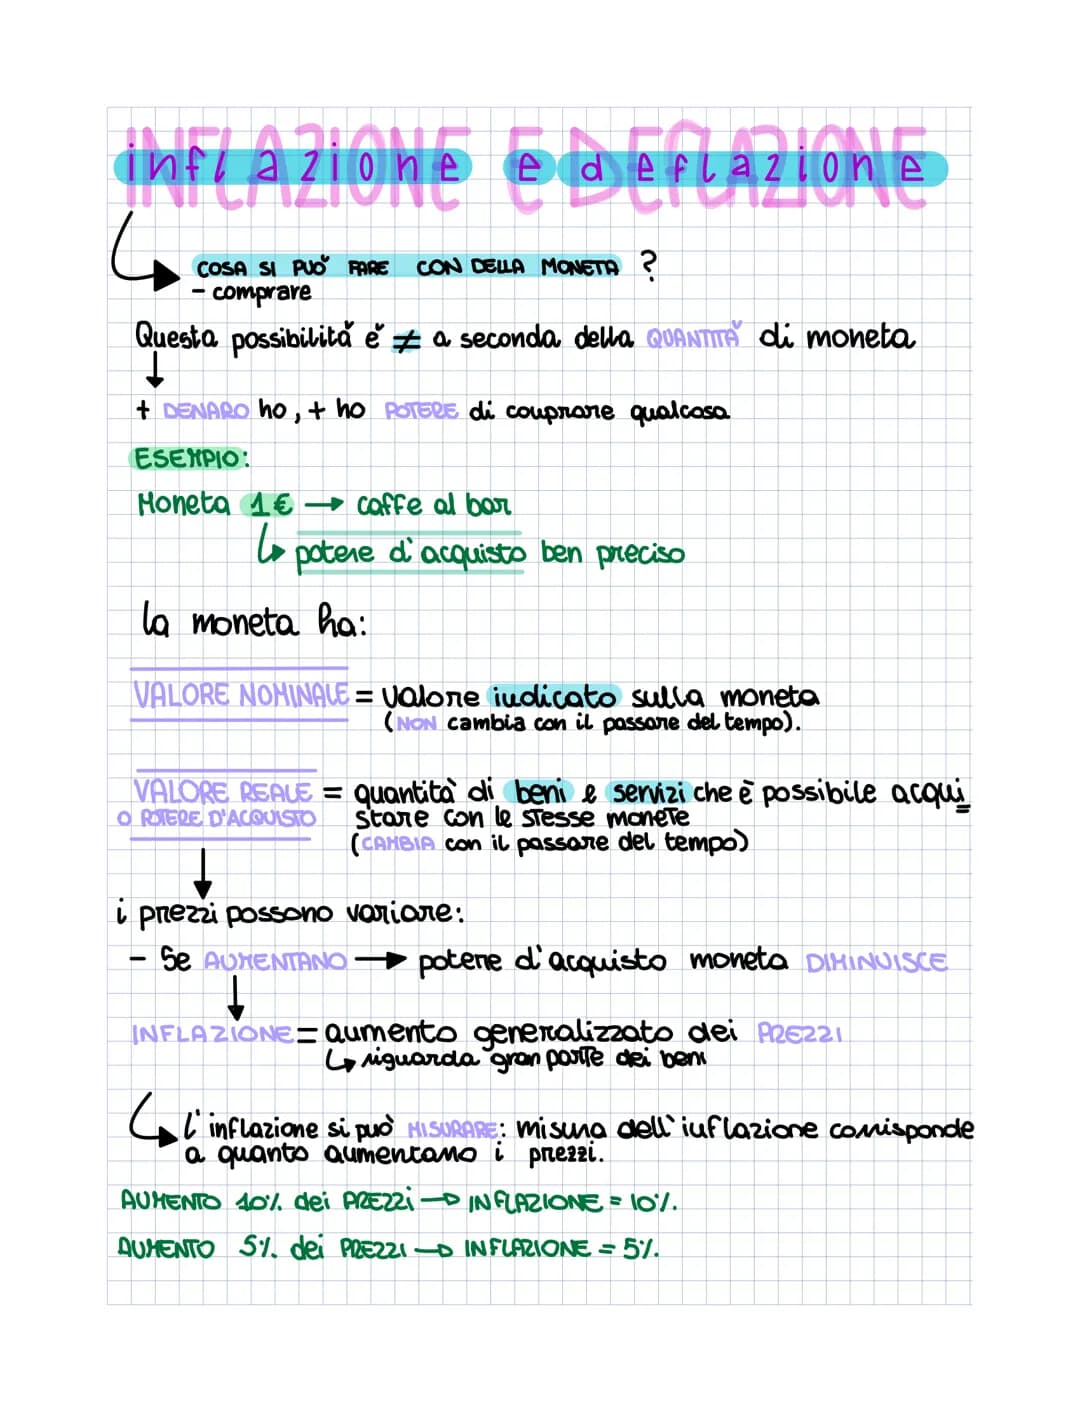 inflazione e deflazione
COSA SI PUÒ FARE CON DELLA MONETA ?
- comprare
Questa possibilità è ≠ a seconda della QUANTITÀ di moneta
↓
+ DENARO ho, + ho POTERE di comprare qualcosa
ESEMPIO:
Moneta 1€ → caffe al bar
↳ potere d'acquisto ben preciso
la moneta ha:
VALORE NOMINALE = valore indicato sulla moneta
(NON cambia con il passare del tempo).
VALORE REALE = quantità di beni e servizi che è possibile acqui
O POTERE D'ACQUISTO stare con le stesse monete
(CAMBIA con il passare del tempo)
↓
i prezzi possono variare:
- Se AUMENTANO → potere d'acquisto moneta DIMINUISCE
↓
INFLAZIONE = aumento generalizzato dei PREZZI
↳ riguarda gran parte dei beni
↳ l'inflazione si può MISURARE: misura dell'inflazione corrisponde
a quanto aumentano i prezzi.
AUMENTO 10% dei PREZZI → INFLAZIONE = 10%.
AUMENTO 5% dei PREZZI → INFLAZIONE = 5%.